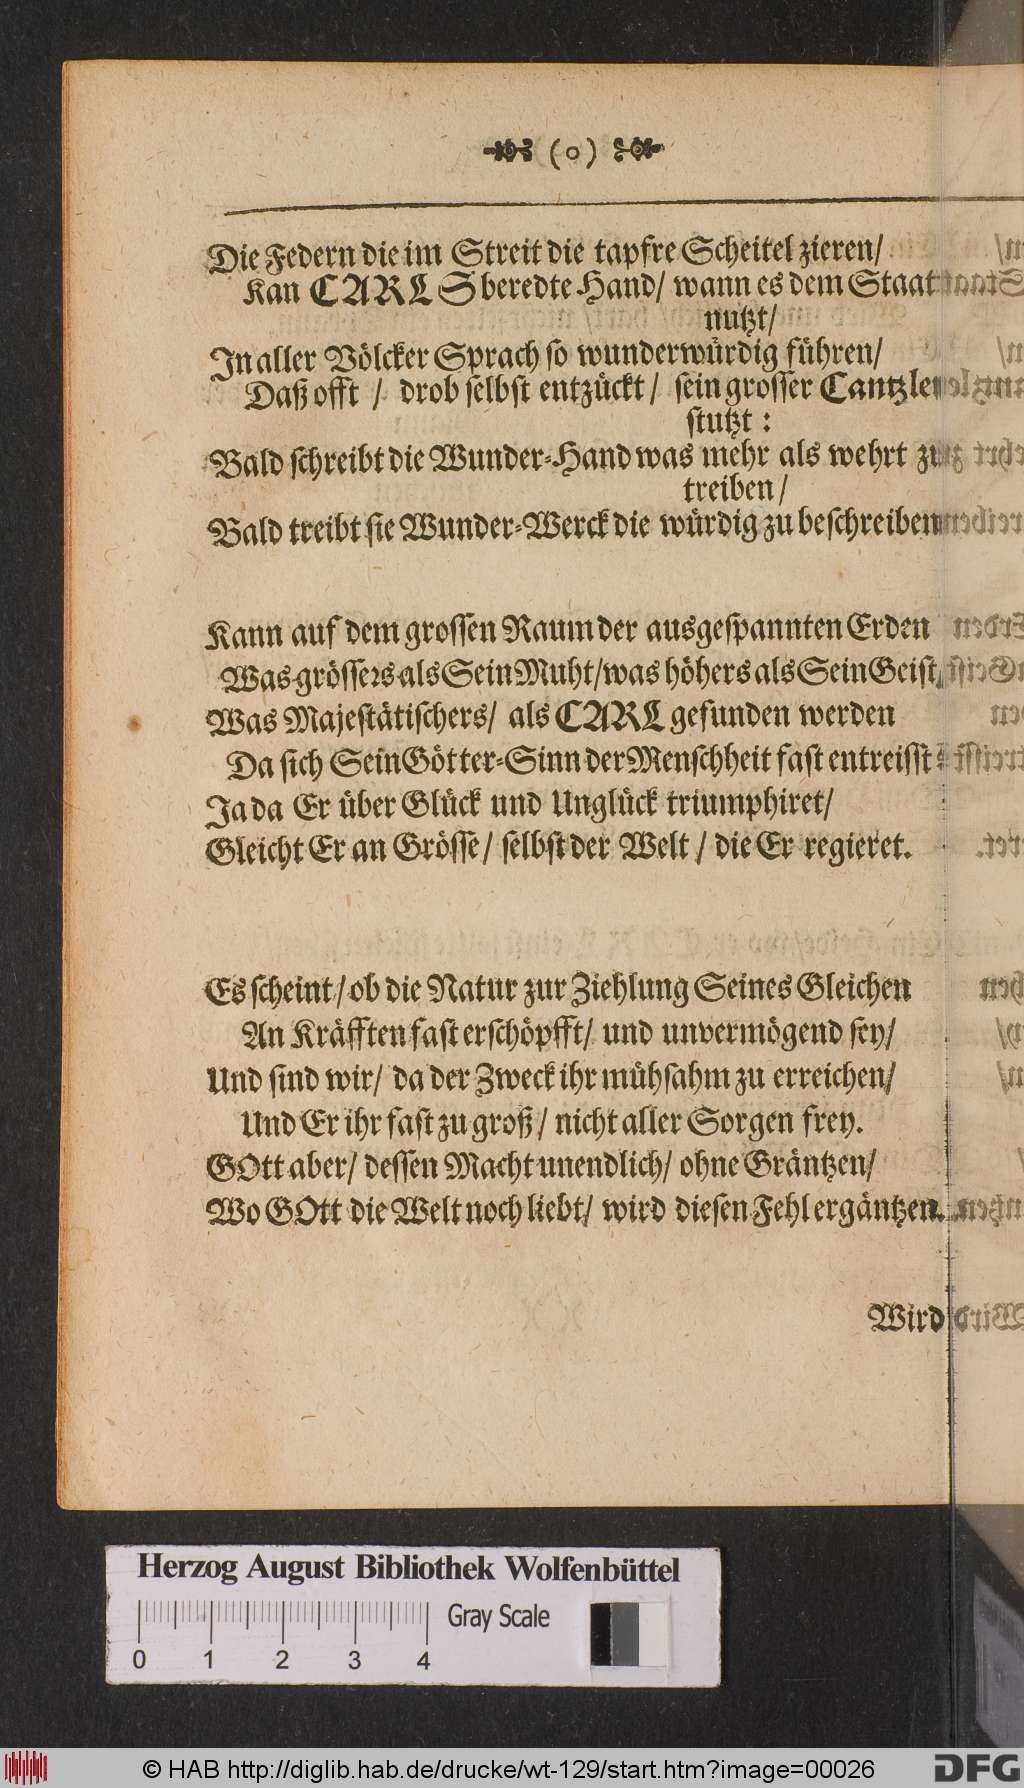 (o)
Die Federn die im Streit die tapfre Scheitel zieren/
Kan CARLS beredte Hand/ wann es dem Staat
nutzt/
In aller Völcker Sprach so wunderwürdig führen/
Daß offt / drob selbst entzückt / sein grosser Cantzler
stutzt :
Bald schreibt die Wunder-Hand was mehr als wehrt zu
treiben /
Bald treibt sie Wunder-Werck die würdig zu beschreiben
Kann auf dem grossen Raum der ausgespannten Erden
Was grössers als Sein Muht/was höhers als Sein Geist/
Was Majestätischers/ als CARL gefunden werden
Da sich Sein Götter-Sinn der Menschheit fast entreisst :
Ja da Er über Glück und Unglück triumphiret/
Gleicht Er an Grösse / selbst der Welt / die Er regieret.
Es scheint / ob die Natur zur Ziehlung Seines Gleichen
An Kräfften fast erschöpfft/ und unvermögend sey/
Und sind wir/ da der Zweck ihr mühsahm zu erreichen/
Und Er ihr fast zu groß / nicht aller Sorgen frey.
GOtt aber/ dessen Macht unendlich/ ohne Gräntzen/
Wo GOtt die Welt noch liebt/ wird diesen Fehl ergäntzen.
Wird
Herzog August Bibliothek Wolfenbüttel
Gray Scale
0 1 2 3 4
© HAB http://diglib.hab.de/drucke/wt-129/start.htm?image=00026
DFG